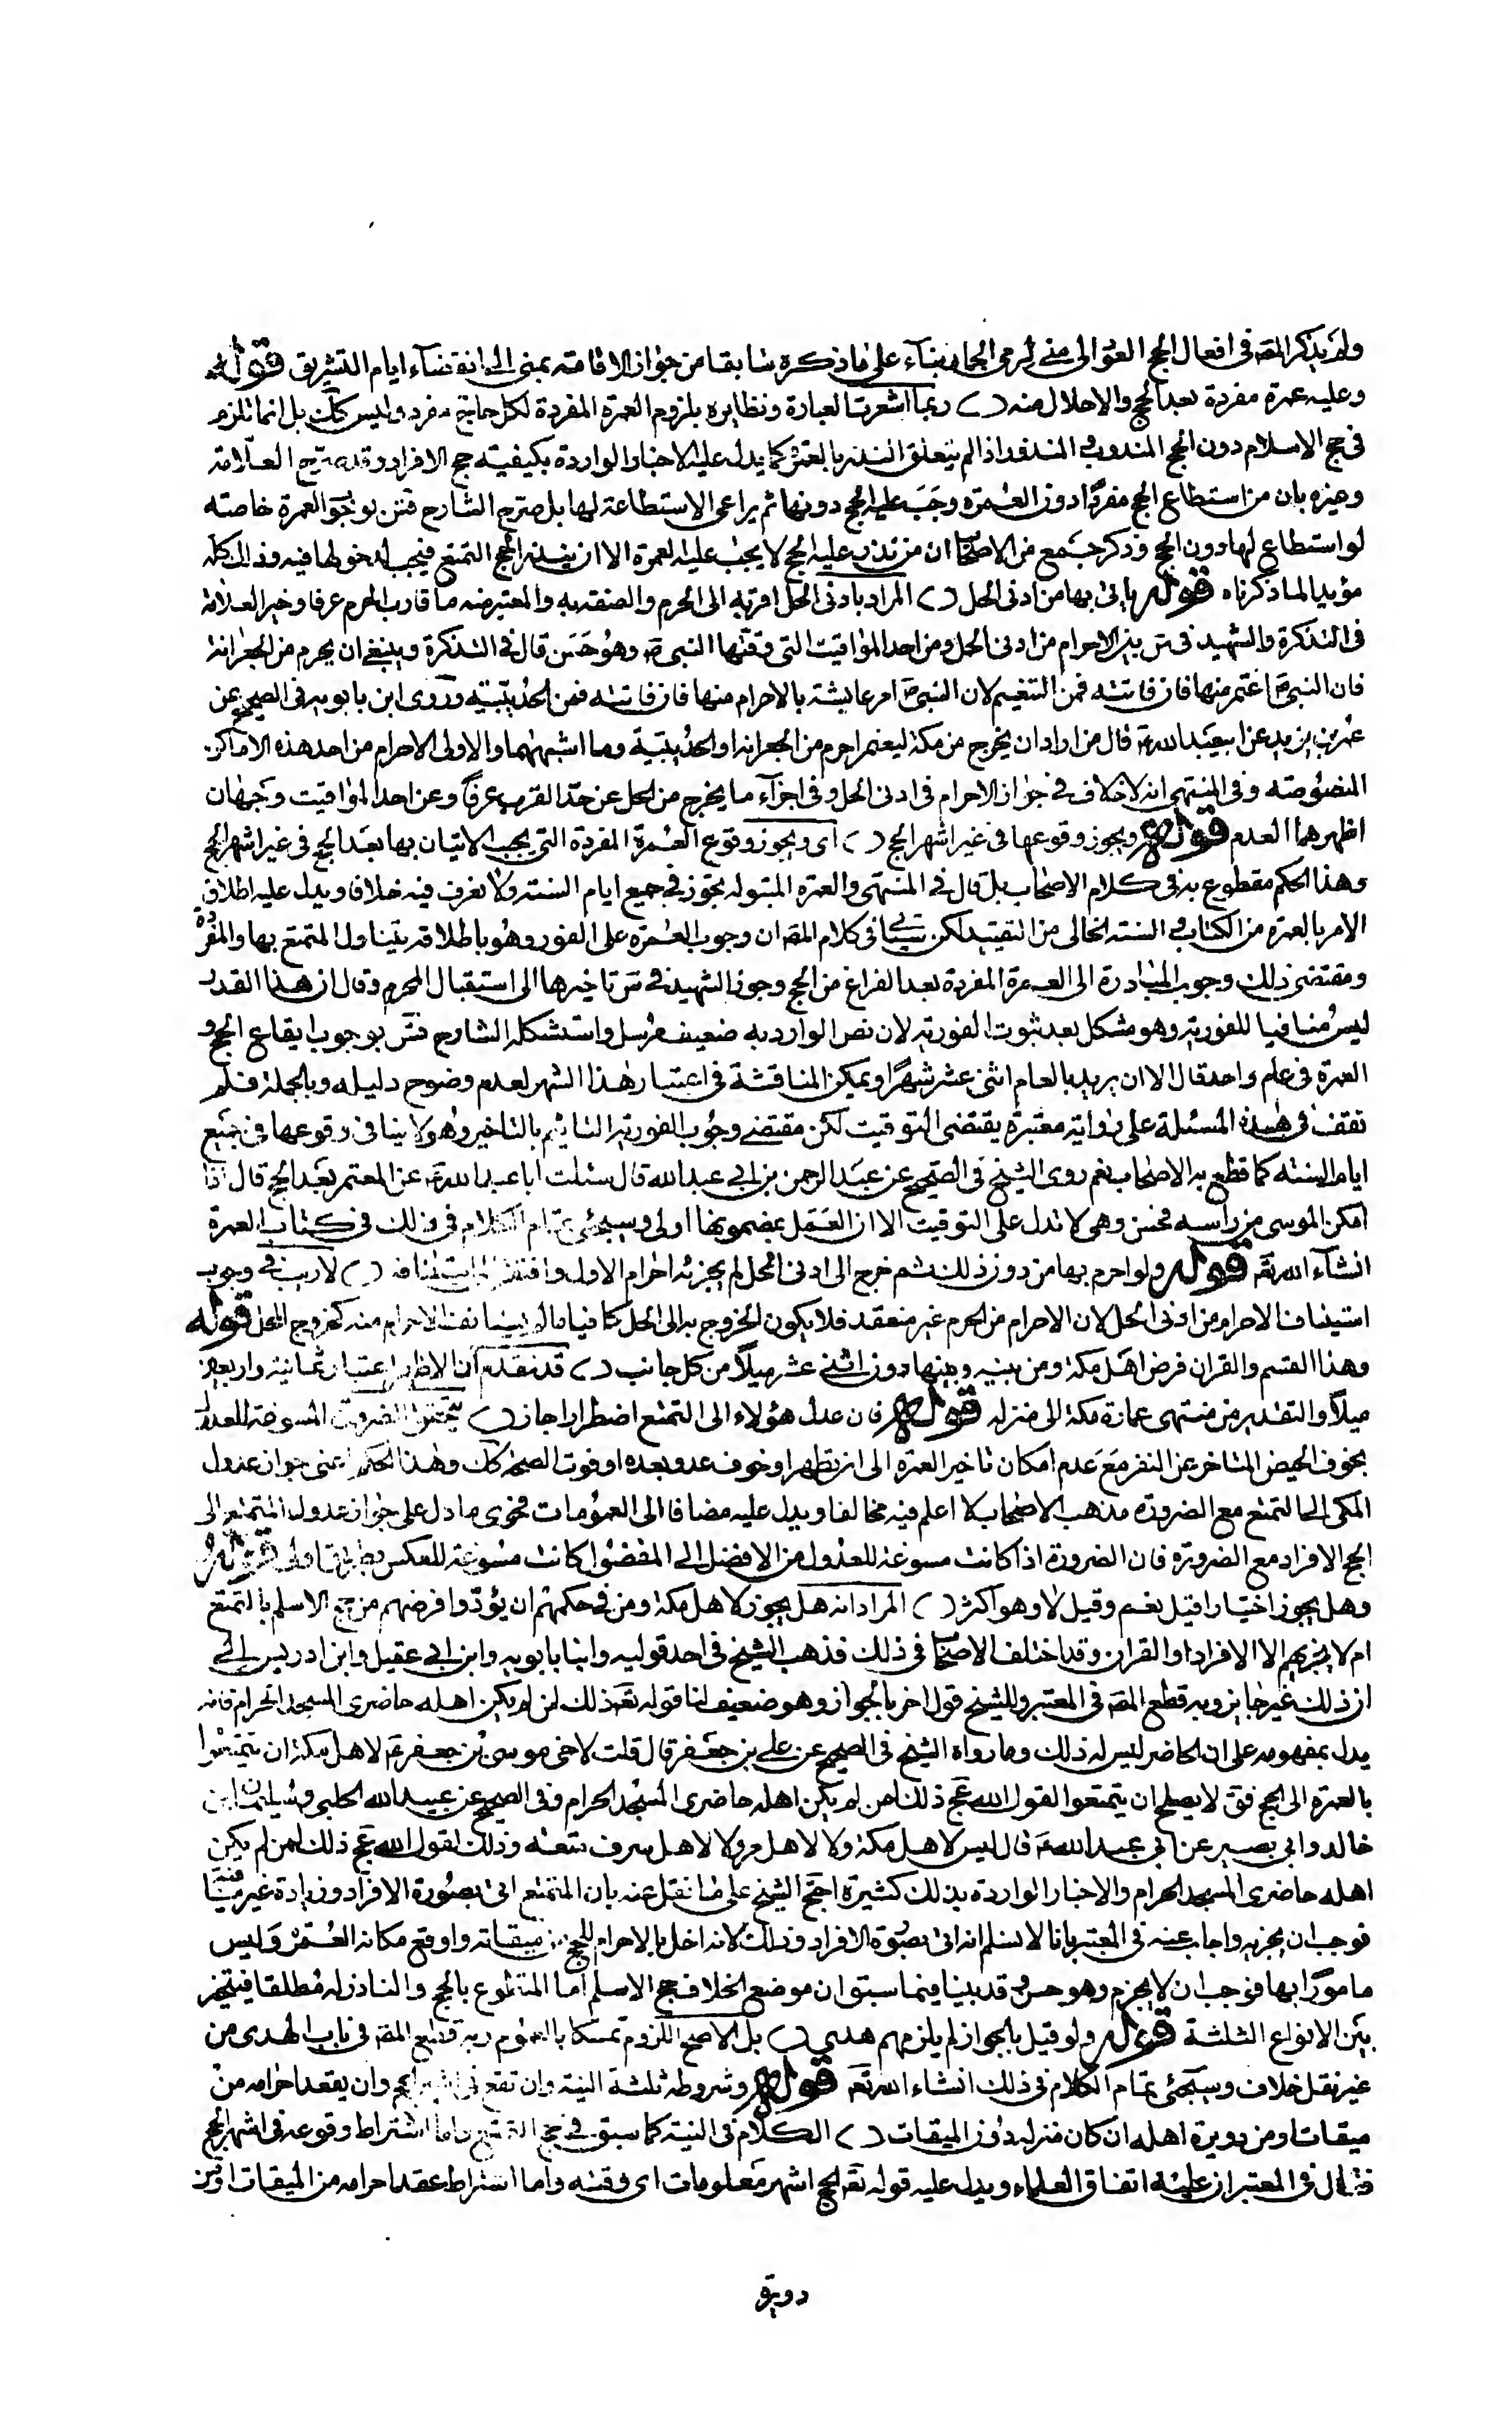 ولم يذكر المصَ في افعال الحج العود الى منى لرمي الجمار بناء على ما ذكره سابقا من جواز الاقامة بمنى الى انقضآء ايام التشريق قوله
وعليه عمرة مفردة بعد الحج والاحلال منه ( ) ربما اشعرت العبارة ونظايره بلزوم العمرة المفردة لكل حاج مفرد وليس كك بل انما تلزم
في حج الاسلام دون الحج المندوب و المنذور اذا لم يتعلق النذر بالعمرة كما يدل عليه الاخبار الواردة بكيفية حج الافراد وقد صرّح العلّامة
وغيره بان من استطاع الحج مفردًا دون العمرة وجَبَ عليه الحج دونها ثم يراعي الاستطاعة لها بل صرّح الشارح قتن بوجوب العمرة خاصة
لو استطاع لها دون الحج وذكر جمع من الاصحاب ان من نذر عليه الحج لا يجب عليه العمرة الا ان ينذر حج التمتع فيجب لدخولها فيه وذلك كله
مؤيد لما ذكرناه قوله ياتي بها من ادنى الحل ( ) المراد بادنى الحل اقربه الى الحرم والصقه به والمعتبر منه ما قارب الحرم عرفا وخير العلامة
في التذكرة والشهيد في س بين الاحرام من ادنى الحل ومن احد المواقيت التي وقتها النبي ص وهو حَسَن قال في التذكرة وينبغي ان يحرم من الجعرانة
فان النبي ص اعتمر منها فان فاتته فمن التنعيم لان النبي ص امر عايشة بالاحرام منها فان فاتته فمن الحديبية وروى ابن بابويه في الصحيح عن
عمر بن يزيد عن ابيعبد الله ع قال من اراد ان يخرج من مكة ليعتمر احرم من الجعرانه او الحديبية وما اشبههما والاولى الاحرام من احد هذه الاماكن
المنصوصة وفي المنتهى انه لا خلاف في جواز الاحرام في ادنى الحل وفي اجزآء ما يخرج من الحل عن حدّ القرب عرفًا وعن احد المواقيت وجهان
اظهرهما العدم قوله ويجوز وقوعها في غير اشهر الحج ( ) اى ويجوز وقوع العمرة المفردة التي يجب الاتيان بها بعد الحج في غير اشهر الحج
وهذا الحكم مقطوع به في كلام الاصحاب بل قال في المنتهى والعمرة المبتولة تجوز في جميع ايام السنة ولا نعرف فيه خلافا ويدل عليه اطلاق
الامر بالعمرة من الكتاب و السنة الخالي من التقييد لكن سياتي في كلام المصَ ان وجوب العمرة على الفور وهو باطلاقه يتناول المتمتع بها والمفردة
ومقتضى ذلك وجوب المبادرة الى العمرة المفردة بعد الفراغ من الحج وجوز الشهيد في س تاخيرها الى استقبال المحرم وقال ان هذا القدر
ليس منافيا للفورية وهو مشكل بعد ثبوت الفورية لان نص الوارد به ضعيف مرسل واستشكله الشارح قتس بوجوب ايقاع الحج و
العمرة في عام واحد قال الا ان يريد بالعام اثنى عشر شهرًا ويمكن المناقشة في اعتبار هذا الشهر لعدم وضوح دليله وبالجملة فلم
نقف في هذه المسئلة على رواية معتبرة يقتضى التوقيت لكن مقتضى وجوب الفورية التأثيم بالتاخير وهو لا ينافي وقوعها في جميع
ايام السنه كما قطع به الاصحاب نعم روى الشيخ في الصحيح عن عبد الرحمن بن ابي عبد الله قال سئلت ابا عبد الله ع عن المعتمر بعد الحج قال اذا
امكن الموسى من رأسه فحسن وهي لا تدل على التوقيت الا ان العمل بمضمونها اولى وسيجئ تمام الكلام في ذلك في كتاب العمرة
انشآء الله تعَ قوله ولو احرم بها من دون ذلك ثم خرج الى ادنى الحل لم يجزئه احرام الاول وافتقر الى استينافه ( ) لا ريب في وجوب
استيناف الاحرام من ادنى الحل لان الاحرام من الحرم غير منعقد فلا يكون الخروج به الى الحل كافيا ما لم يستانف الاحرام منه كخروج المحل قوله
وهذا القسم والقران فرض اهل مكة ومن بينه وبينها دون اثنى عشر ميلًا من كل جانب ( ) قد تقدم ان الاظهر اعتبار ثمانية واربعين
ميلًا والتقدير من منتهى عمارة مكة الى منزله قوله فان عدل هؤلاء الى التمتع اضطرارا جاز ( ) يتحقق الضرورة المسوغة للعدول
بخوف الحيض المتاخر عن النفر مَعَ عدم امكان تاخير العمرة الى ان تطهر او خوف عدو بعده او فوت الصحبة كك وهذا الحكم اعني جواز عدول
المكي الى التمتع مع الضرورة مذهب الاصحاب لا اعلم فيه مخالفا ويدل عليه مضافا الى العمومات فحوى ما دل على جواز عدول المتمتع الى
الحج الافراد مع الضرورة فان الضرورة اذا كانت مسوغة للعدول من الافضل الى المفضول كانت مسوغة للعكس بطريق اولى قوله
وهل يجوز اختيارا قيل نعم وقيل لا وهو اكثر ( ) المراد انه هل يجوز لاهل مكة ومن في حكمهم ان يؤدّوا فرضهم من حج الاسلم بالتمتع
ام لا يجزيهم الا الافراد او القران وقد اختلف الاصحاب في ذلك فذهب الشيخ في احد قوليه وابنا بابويه وابن ابي عقيل وابن ادريس الى
ان ذلك غير جايز وبه قطع المصَ في المعتبر وللشيخ قول اخر بالجواز وهو ضعيف لنا قوله تعَ ذلك لمن لم يكن اهله حاضرى المسجد الحرام فانه
يدل بمفهومه على ان الحاضر ليس له ذلك وما رواه الشيخ في الصحيح عن علي بن جعفر قال قلت لاخي موسى بن جعفر ع لاهل مكة ان يتمتعوا
بالعمرة الى الحج فق لا يصلح ان يتمتعوا لقول الله عج ذلك لمن لم يكن اهله حاضرى المسجد الحرام وفي الصحيح عن عبيد الله الحلبي وسليمان ابن
خالد وابي بصير عن ابي عبد الله ع قال ليس لاهل مكة ولا لاهل مر ولا لاهل سرف متعة وذلك لقول الله عج ذلك لمن لم يكن
اهله حاضرى المسجد الحرام والاخبار الواردة بذلك كثيرة احتج الشيخ على ما نقل عنه بان المتمتع اتى بصورة الافراد وزيادة غير منافية
فوجب ان يجزيه واجاب عنه في المعتبر بانا لا نسلم انه اتى بصورة الافراد وذلك لانه اخل بالاحرام للحج من ميقاته واوقع مكانه العمرة وليس
مامورًا بها فوجب ان لا يجزم وهو حسن وقد بينا فيما سبق ان موضع الخلاف حج الاسلم اما المتطوع بالحج والناذر له مُطلقا فيتخير
بين الانواع الثلثة قوله ولو قيل بالجواز لم يلزمهم هدي ( ) بل الاصح اللزوم تمسكا بالعموم وبه قطع المصَ في باب الهدى من
غير نقل خلاف وسيجئ تمام الكلام في ذلك انشاء الله تعَ قوله وشروطه ثلثة النية وان تقع في اشهر الحج وان يعقد احرامه من
ميقات او من دويرة اهله ان كان منزله دون الميقات ( ) الكلام في النية كما سبق في حج التمتع واما اشتراط وقوعه في اشهر الحج
فقال في المعتبر ان عليه اتفاق العلماء ويدل عليه قوله تعَ الحج اشهر معلومات اى وقته واما اشتراط عقد احرامه من الميقات او من
دويرة